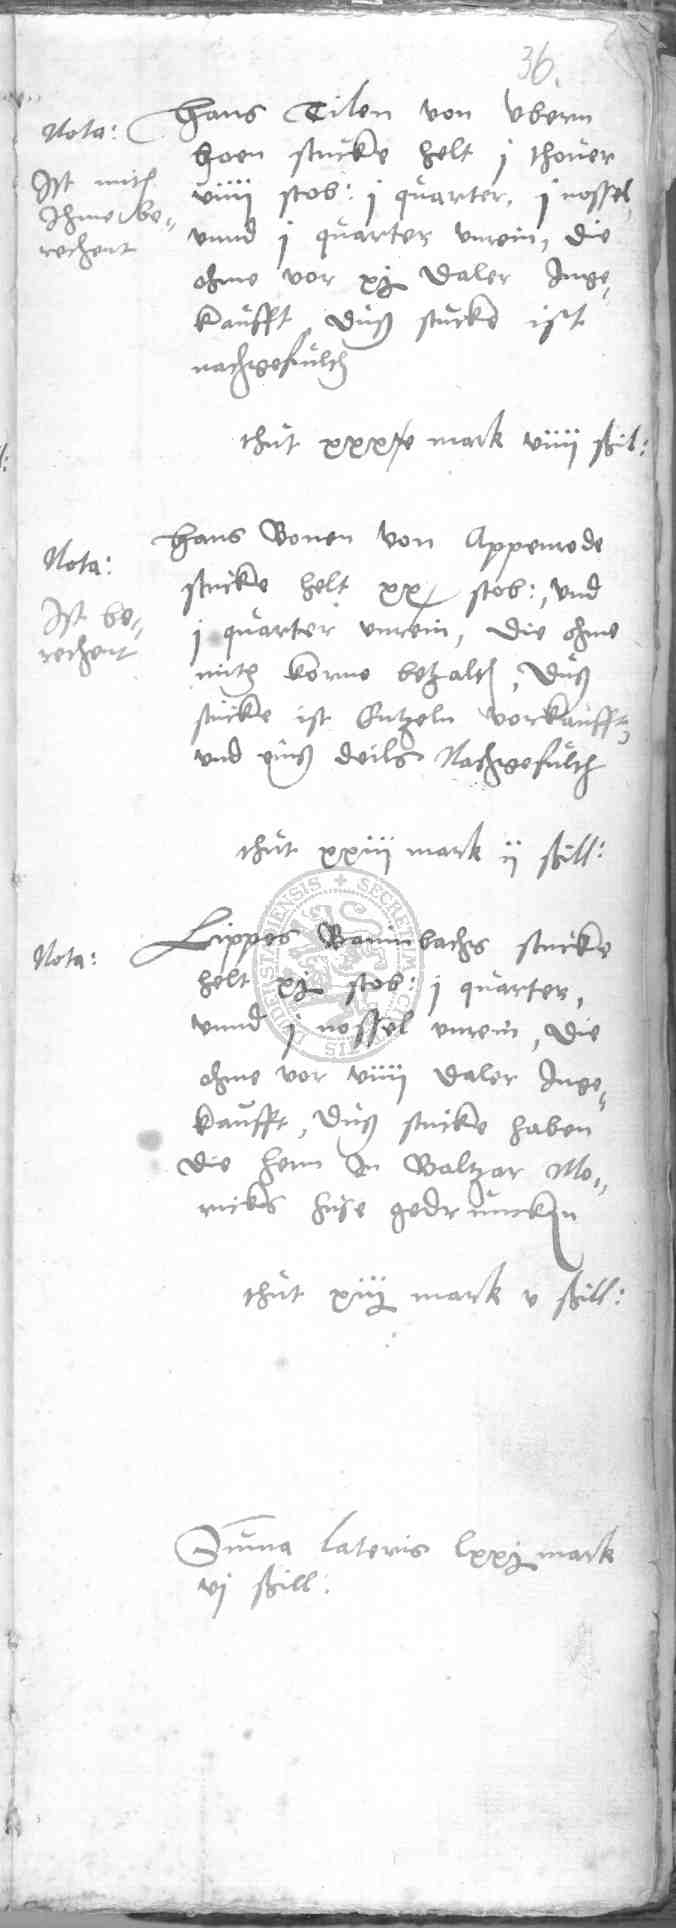 36.
Nota:
Ist mith
Ihme be-
rechent
Hans Tilen von Vbern
hoen stucke helt j thover
viiij stob: j quarter, j nossel
vnnd j quarter vnrein, die
ohme vor xj daler Inge-
kaufft, duß stucke ist
nachgefulth
thut mark viiij ßil:
Nota:
Ist be-
rechent
Hans Bonen von Appenrode
stucke helt xx stob:, vnd
j quarter vnrein, die ohme
mith korne betzalth, duß
stucke ist Entzeln vorkaufft
vnd eins deils Nachgefulth
thut xxiii mark ij ßill:
Nota:
Lippes Bawmbachs stucke
helt xj stob: j quarter,
vnnd j nossel vnrein, die
ohme vor viiij daler Inge-
kaufft, duß stucke haben
die hern In Baltzar Mo-
ricks huse gedruncken
thut xiij mark v ßill:
Suma lateris lxxj mark
vj ßill: